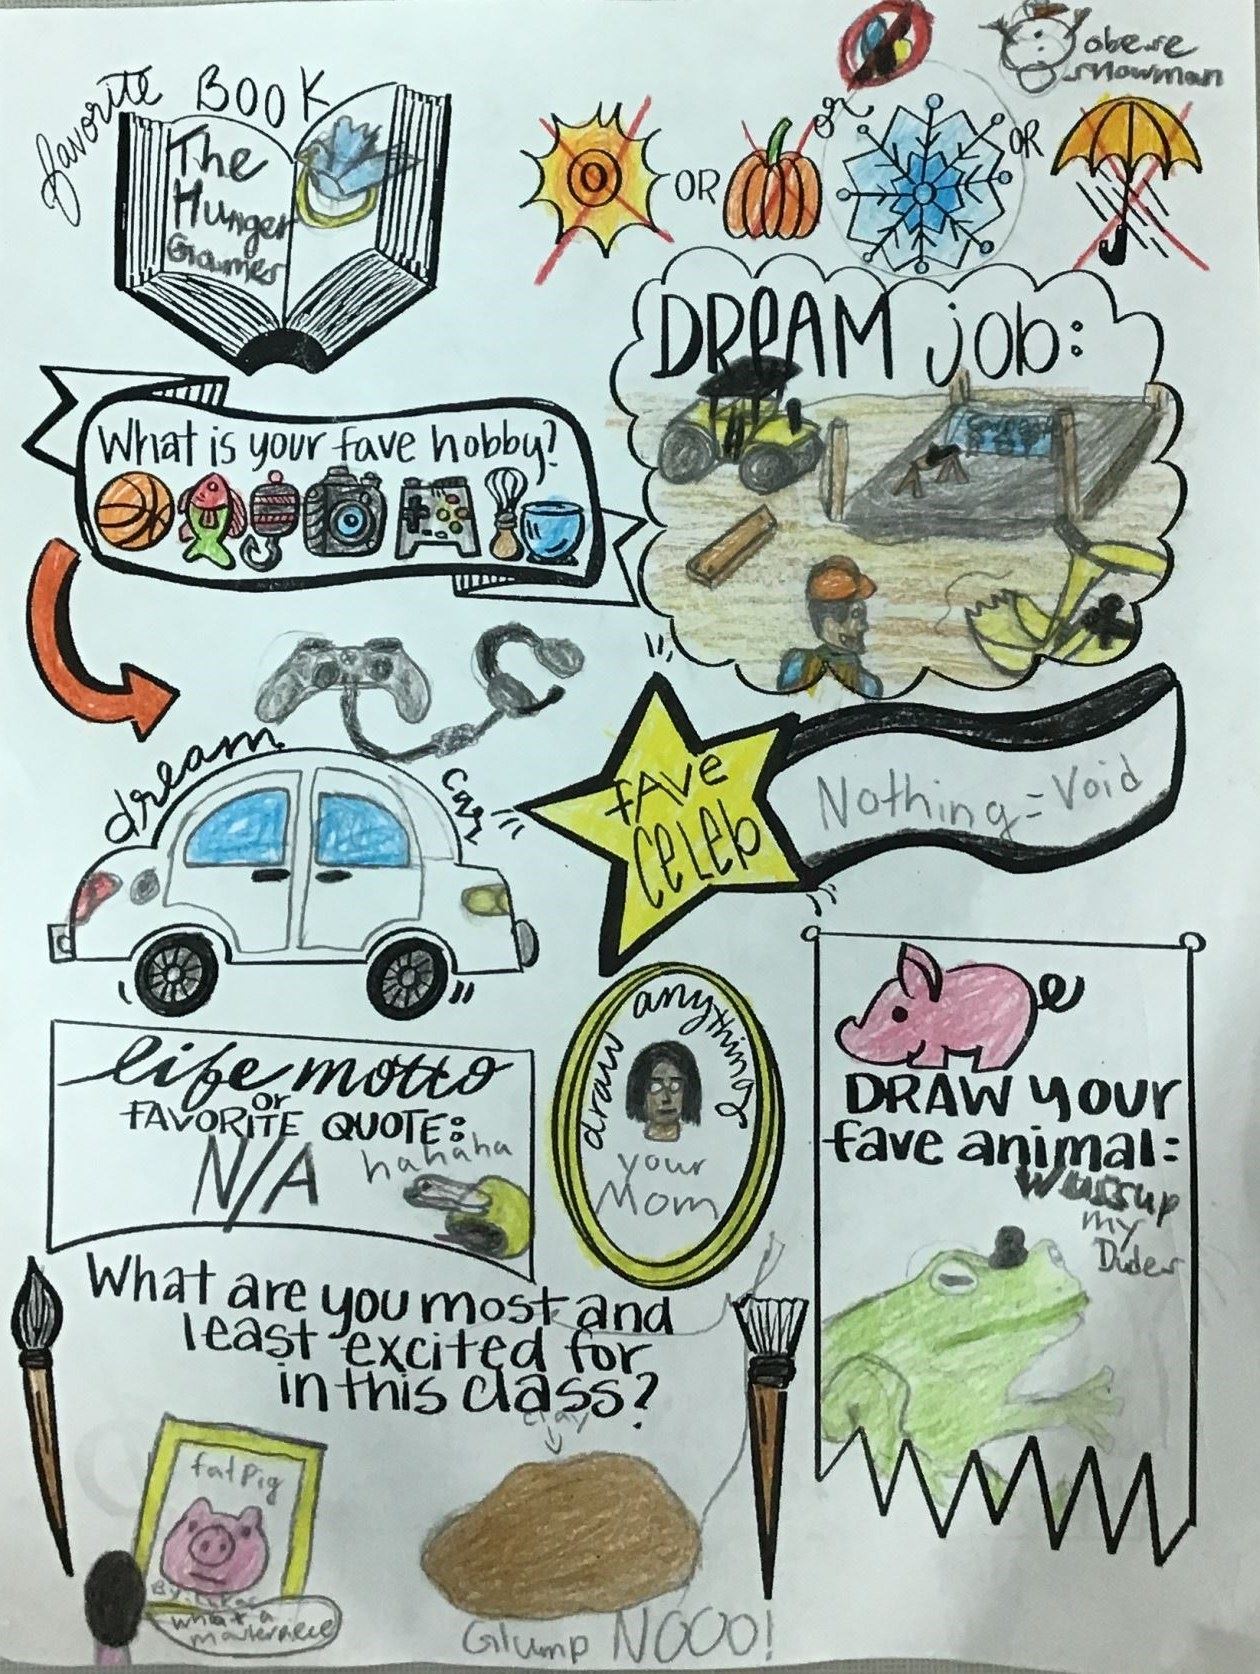 favorite BOOK
The
Hunger
Games
obese
snowman
OR
or
OR
DREAM job:
What is your fave hobby?
dream car
FAVE
CELEB
Nothing=Void
life motto
or
FAVORITE QUOTE:
N/A
hahaha
draw anything
your
Mom
DRAW your
fave animal:
Wussup
my
Dudes
What are you most and
least excited for
in this class?
clay
fat Pig
what a
masterpiece
Glump NOOO!